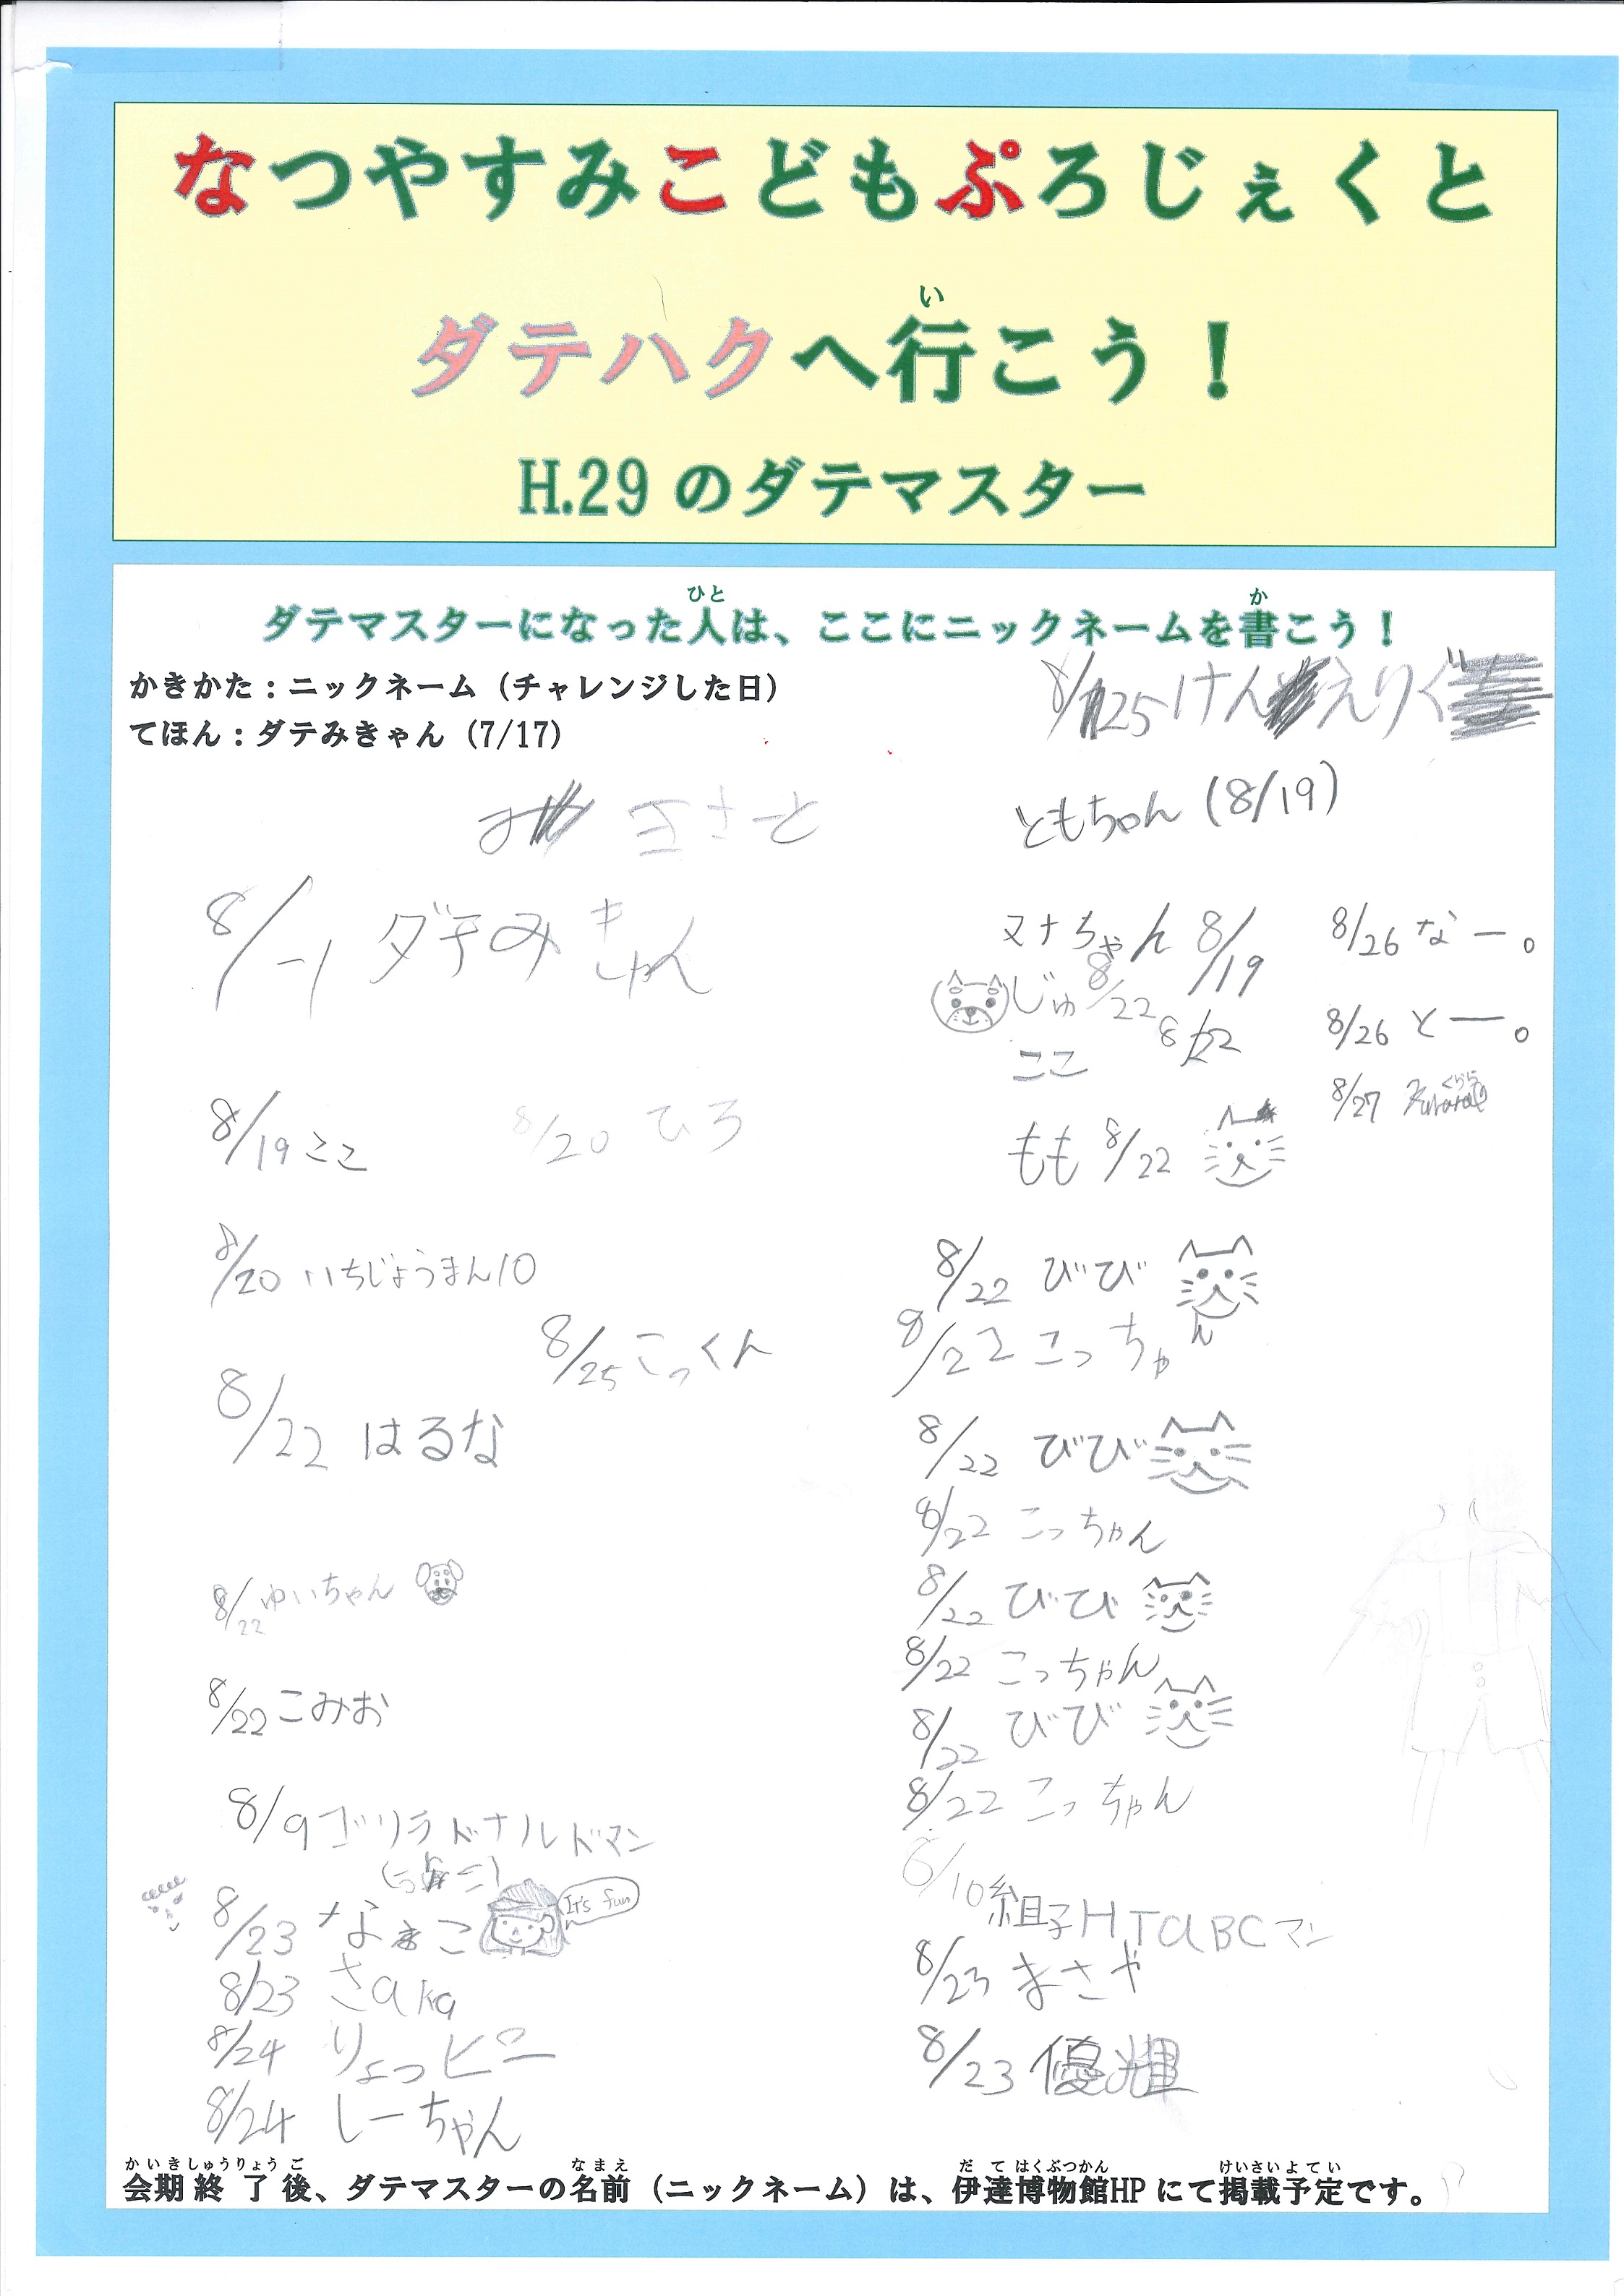 なつやすみこどもぷろじぇくと
ダテハクへ行こう！
い
H.29 のダテマスター
ダテマスターになった人は、ここにニックネームを書こう！
ひと
か
かきかた：ニックネーム（チャレンジした日）
てほん：ダテみきゃん（7/17）
8/25 けん えりぐ
ともちゃん (8/19)
8/ ダテみきゃん
ヌナちゃん 8/19
8/26 なー。
じゅ 8/22
ここ 8/22
8/26 とー。
8/27
くらら
8/19 ここ
8/20 ひろ
もも 8/22
8/20 いちじょうまん10
8/22 びび
8/25 こっくん
8/22 こっちゃん
8/22 はるな
8/22 びび
8/22 こっちゃん
8/22 ゆいちゃん
8/22 びび
8/22 こっちゃん
8/22 こみお
8/22 びび
8/9 ゴリラドナルドマン
8/22 こっちゃん
8/23 なまこ
It's fun
/10 組子HTaBCマン
8/23 さaka
8/23 まさや
8/24 りょっピー
8/23 優輝
8/24 しーちゃん
かいきしゅうりょうご
なまえ
だてはくぶつかん
けいさいよてい
会期終了後、ダテマスターの名前（ニックネーム）は、伊達博物館HPにて掲載予定です。